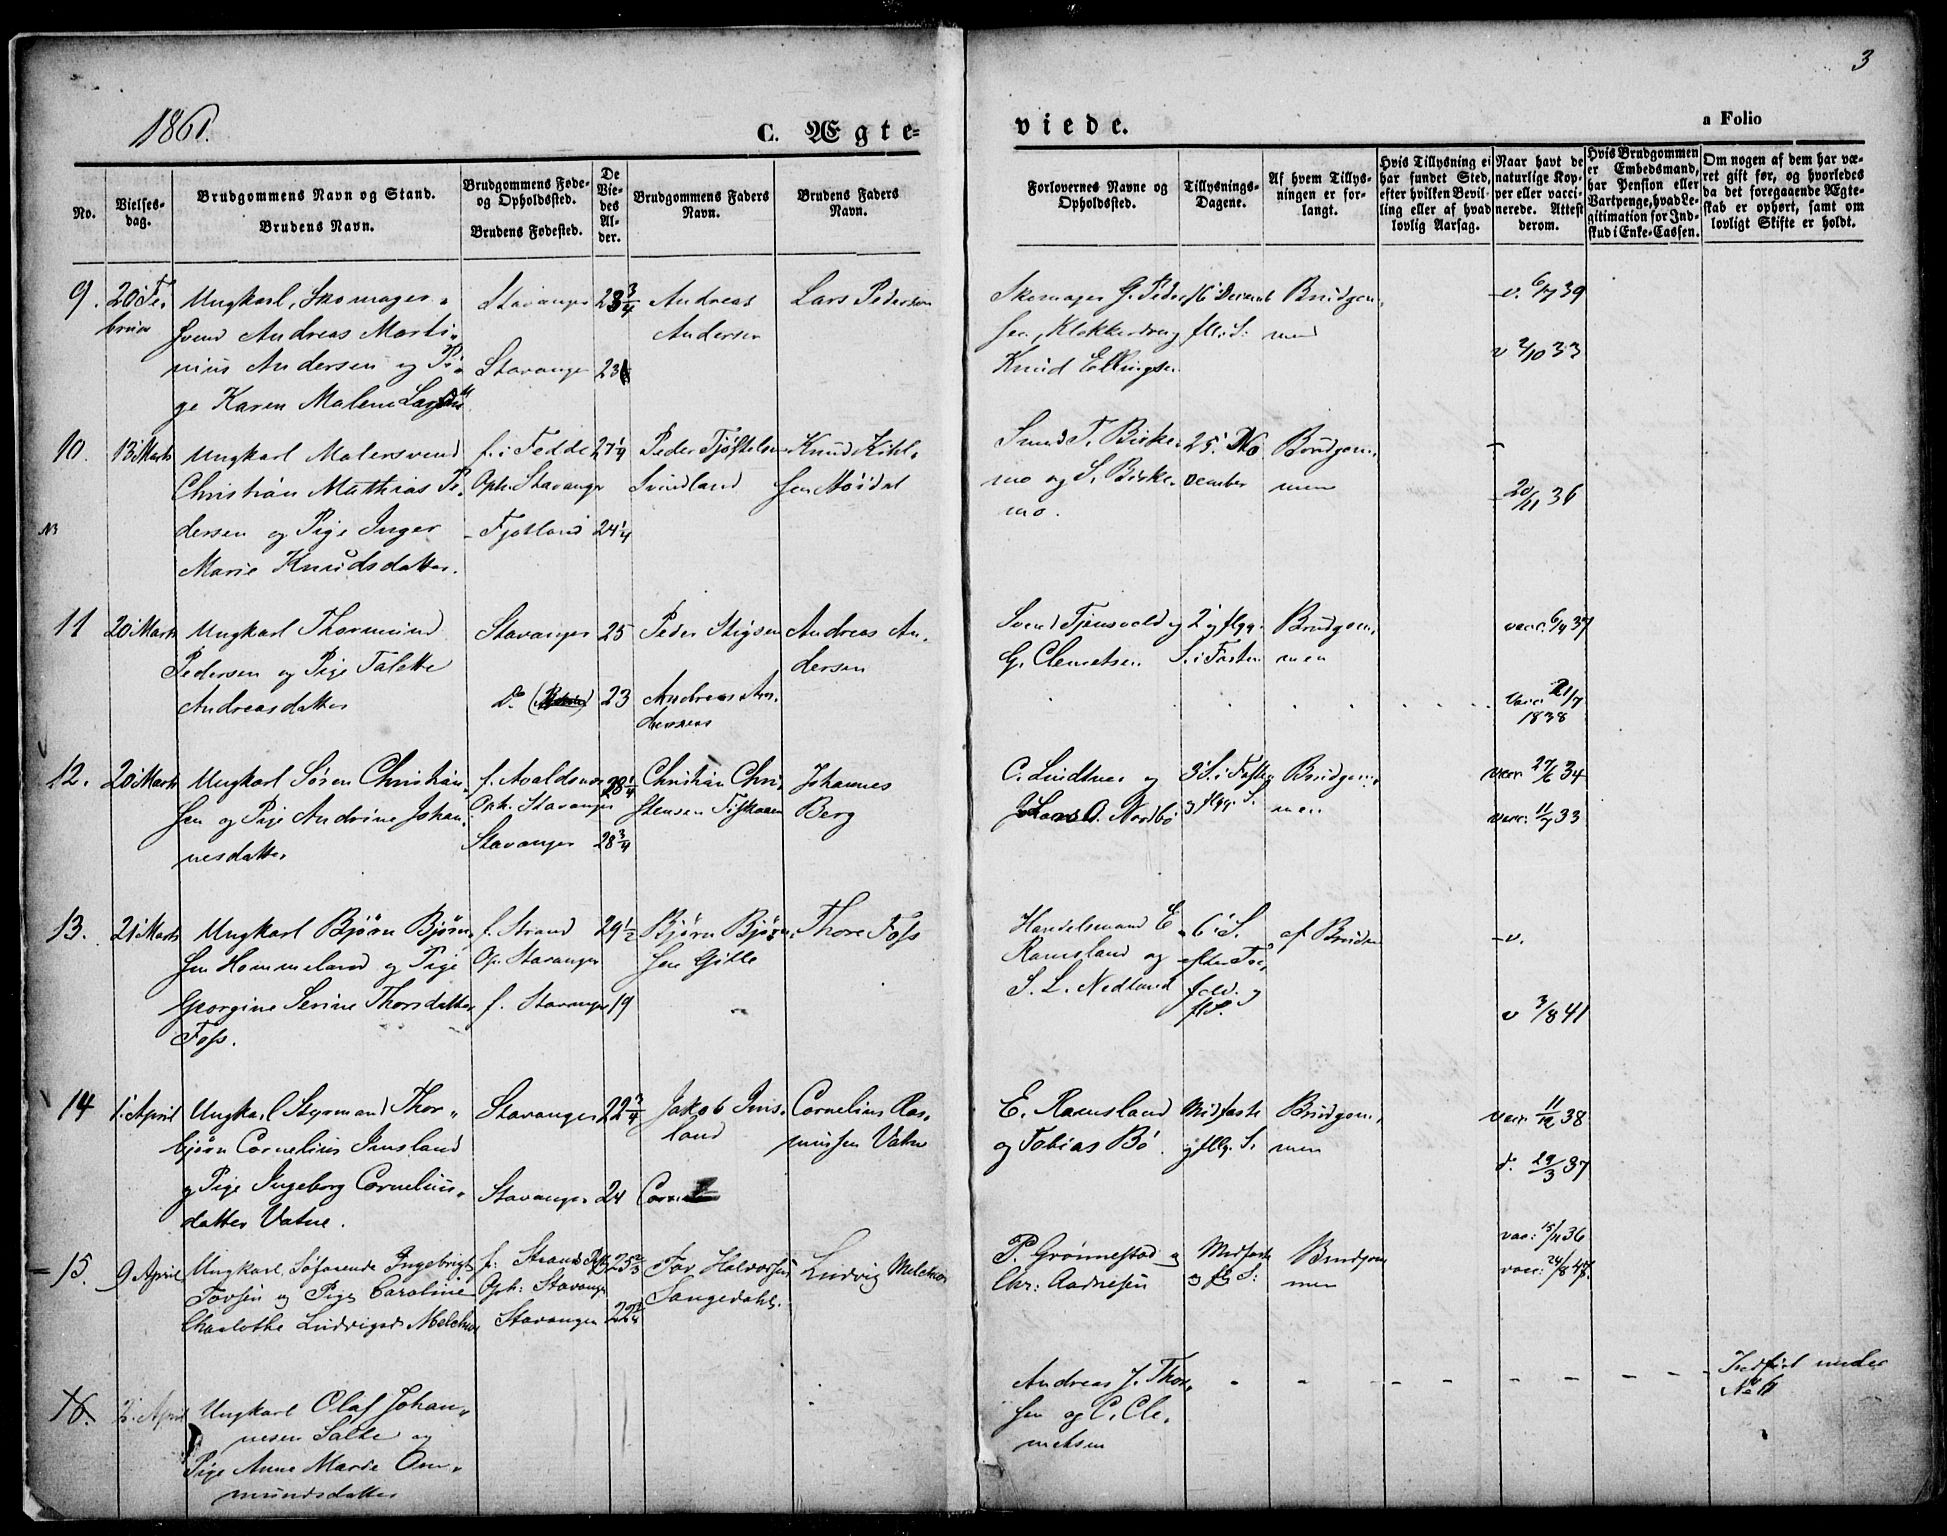 3
1861.
C. Ægte=
viede.
a Folio
No.
Vielses-
dag.
Brudgommens Navn og Stand.
Brudens Navn.
Brudgommens Føde-
og Opholdssted.
Brudens Fødested.
De
Vie-
des
Al-
der.
Brudgommens Faders
Navn.
Brudens Faders
Navn.
Forlovernes Navne og
Opholdssted.
Tillysnings-
Dagene.
Af hvem Tillys-
ningen er for-
langt.
Hvis Tillysning ei
har fundet Sted,
efter hvilken Bevil-
ling eller af hvad
lovlig Aarsag.
Naar havt de
naturlige Kop-
per eller vacci-
nerede. Attest
derom.
Hvis Brudgommen
er Embedsmand,
har Pension eller
Vartpenge, hvad Le-
gitimation for Ind-
skud i Enke-Cassen.
Om nogen af dem har væ-
ret gift før, og hvorledes
da det foregaaende Ægte-
skab er ophørt, samt om
lovligt Skifte er holdt.
9. 20 Fe-
bruar
Ungkarl, Skomager-
svend Andreas Marti-
nius Andersen og Pi-
ge Karen Malene
Stavanger 23 3/4
Stavanger 23
Andreas
Andersen
Lars Pedersen
Skomager G. Peder-
sen, Klokkerdrag
Knud Ellingsen
16 Decemb
fl. S:
Brudgom-
men
v. 6/7 39
v 2/10 33
10. 13 Marts
Ungkarl Malersvend
Christian Mathias Pe-
dersen og Pige Inger
Marie Knudsdatter.
f. i Fedde 27 1/4
Oph. Stavanger
Fjotland 24 1/4
Peder Tjøstelsen
Svindland
Knud Kihl-
sen Høidal
Smed T. Birke-
mo og S. Birke-
mo.
25. No
vember
Brudgom-
men
20/11 36
11 20 Marts
Ungkarl Thormund
Pedersen og Pige Talette
Andreasdatter
Stavanger 25
Do 23
Peder Stigsen
Andreas An-
dersen
Andreas An-
dersen
Svend Tjensvold og
G. Clemetsen
2 og flgg.
S. i Fasten
Brudgom-
men
vacc. 6/7 37
vacc. 21/7
1838
12. 20 Marts
Ungkarl Søren Christian-
sen og Pige Andrine Johan-
nesdatter
f. Avaldsnes 28 1/4
Oph. Stavanger
Stavanger 28 3/4
Christian Chri-
stensen Fiskaaen
Johannes
Berg
C. Lindtner og
O. Nordbö
3 S. i Faste
og flgg. S.
Brudgom-
men
vacc. 27/6 34
vacc: 11/7 33
13. 21 Marts
Ungkarl Bjørn Bjørn-
sen Hommeland og Pige
Georgine Serine Thorsdatter
Foss.
f. Strand 29 1/2
Op. Stavanger
f. Stavanger 19
Bjørn Bjørn-
sen Gitle
Thore Foss
Handelsmand E.
Ramsland og
S. L. Nedland
6 S.
efter Tre-
fold. og
fl S.
af Bruden
v.
v 3/8 41
14 1. April
Ungkarl Styrmand Thor-
bjørn Cornelius Imsland
og Pige Ingeborg Cornelius-
datter Vatne.
Stavanger 22
Stavanger 24
Jakob Ims-
land
Cornelius Ras-
mussen Vatne
E. Ramsland
og Tobias Bö
Midfaste
og flg. S.
Brudgom-
men
vacc. 11/12 38
do 29/3 37
15. 9 April
Ungkarl Søfarende Ingebrigt
Tovsen og Pige Caroline
Charlothe Ludvigsd. Melchior
f: Strand
Oph: Stavanger
Stavanger
Tov Halvorsen
Sangedahl.
Ludvig Melchior
P. Grønnestad og
Chr: Aadnesen
Midfaste
og fl. S:
Brudgom
men
vac: 15/11 36
vacc: 24/8
16. 2. April
Ungkarl Olaf Johan-
nesen Salte og
Pige Anne Marie Om-
mundsdatter
Andreas J. Thor-
sen og C. Cle-
metsen
Indført under
No 6